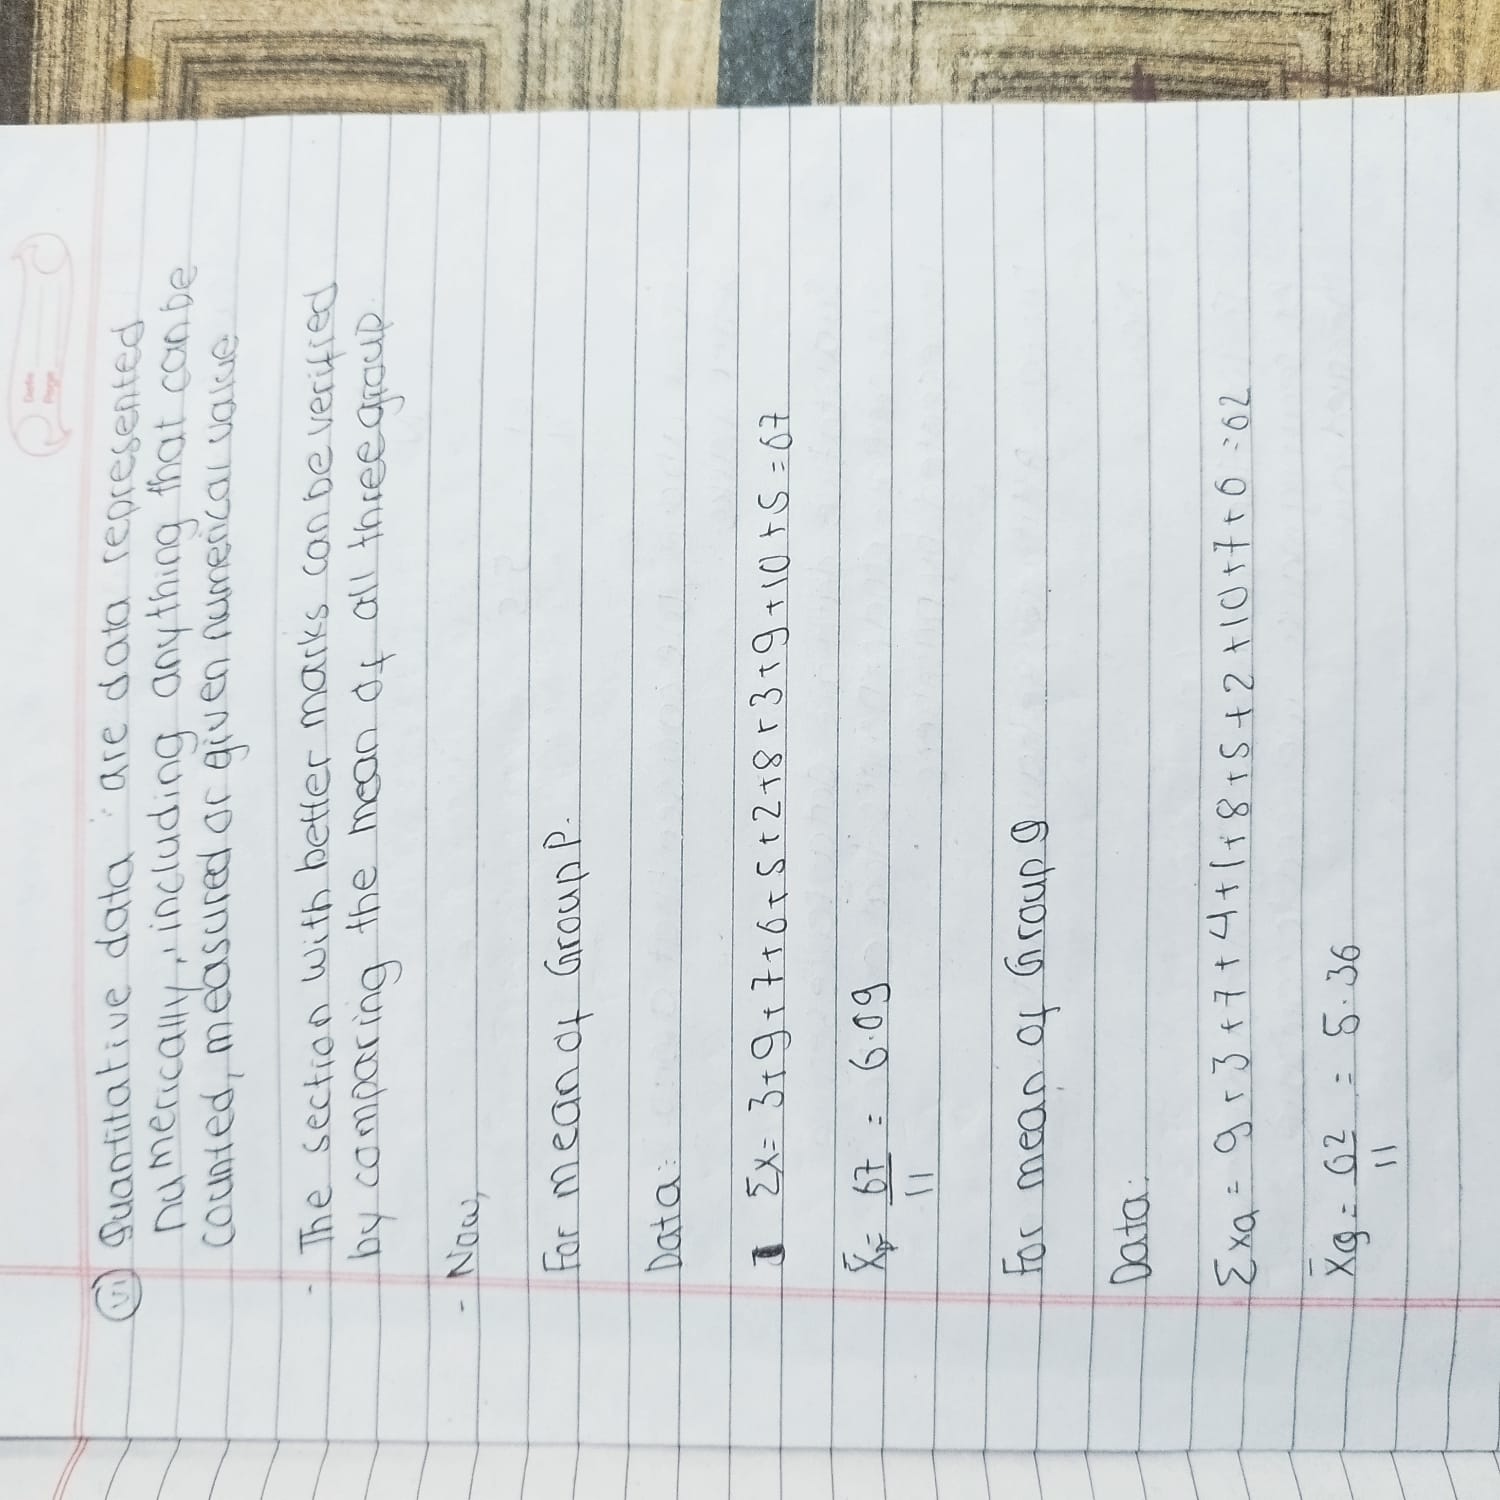 Date
Page
(vi) Quantitative data are data represented
numerically, including anything that can be
counted, measured or given numerical value
- The section with better marks can be verified
by comparing the mean of all three group.
- Now,
For mean of Group P.
Data:
Σx = 3+9+7+6+5+2+8+3+9+10+5 = 67
X̄p = 67/11 = 6.09
For mean of Group Q
Data:
ΣxQ = 9+3+7+4+1+8+5+2+10+7+6 = 62
X̄Q = 62/11 = 5.36